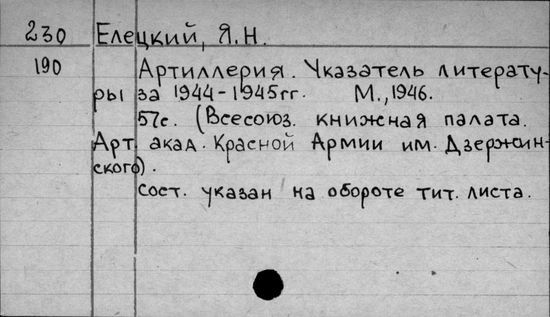 230 Елецкий, Я.Н.
190 Артиллерия. Указатель литерату-
ры за 1944-1945гг. М., 1946.
57с. (Всесоюз. книжная палата.
Арт. акад. Красной Армии им. Дзержин-
ского).
Сост. указан на обороте тит. листа.